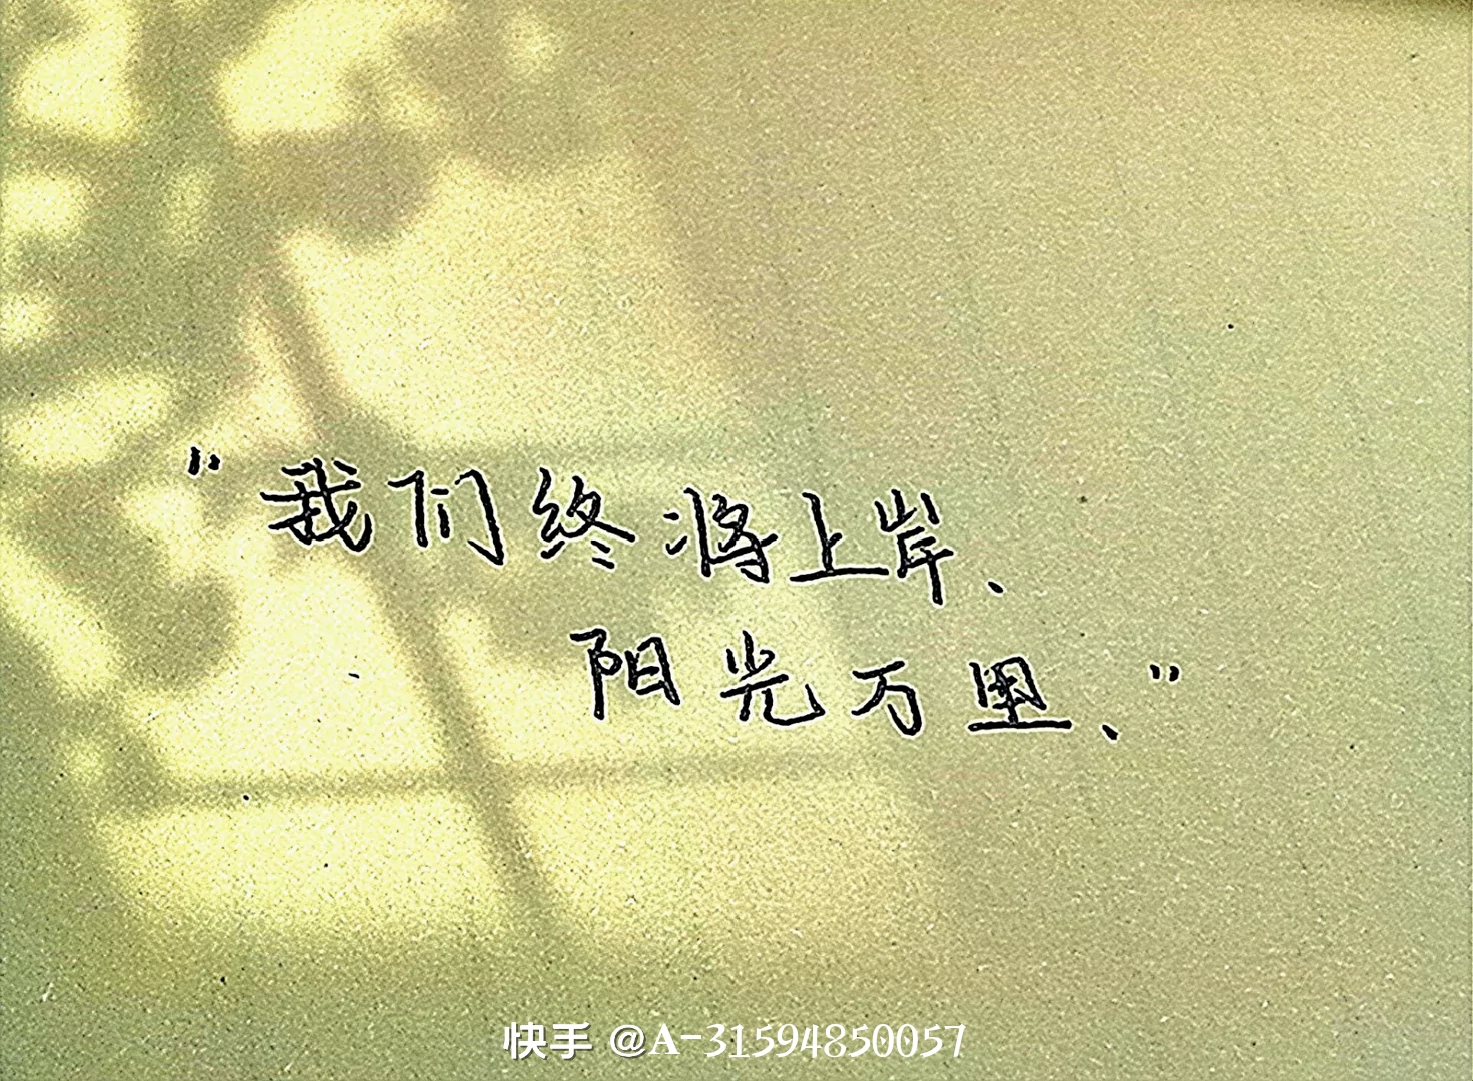 "我们终将上岸、
阳光万里、"
快手 @A-31594850057